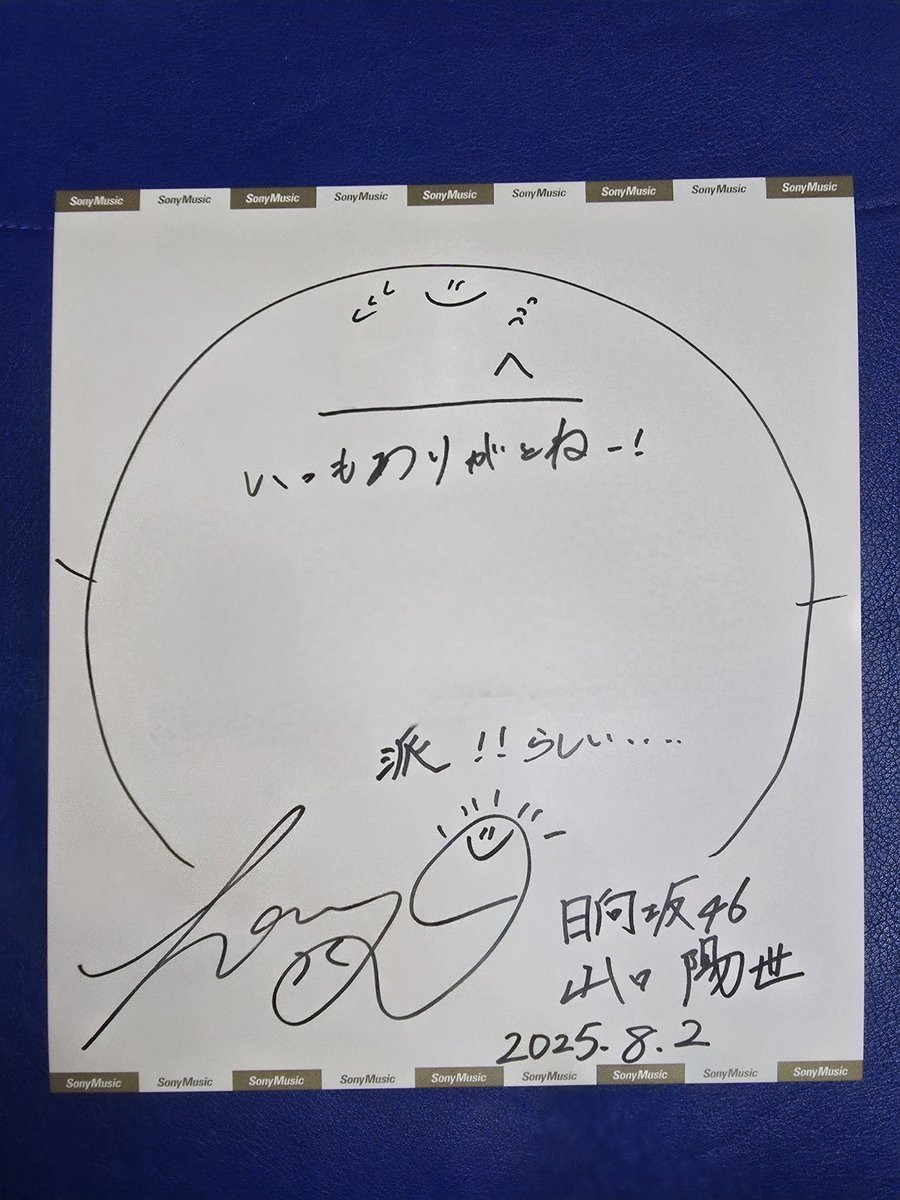 SonyMusic SonyMusic SonyMusic SonyMusic SonyMusic SonyMusic SonyMusic SonyMusic SonyMusic
へ
いつもありがとねー!
派!!らしい....
日向坂46
山口陽世
2025.8.2
SonyMusic SonyMusic SonyMusic SonyMusic SonyMusic SonyMusic SonyMusic SonyMusic SonyMusic